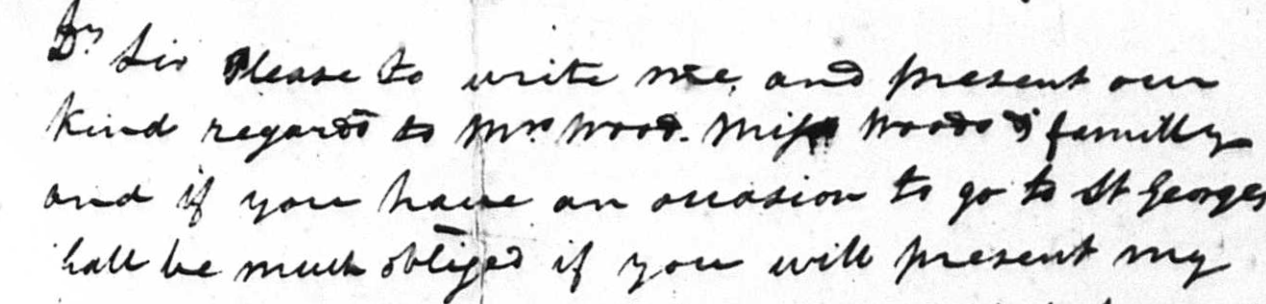 Dr Sir Please to write me, and present our
kind regards to Mrs Wood. Miss Woods & familly
and if you have an occasion to go to St Georges
hall be much obliged if you will present my